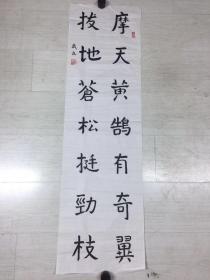 摩天黄鹄有奇翼
拔地蒼松挺勁枝